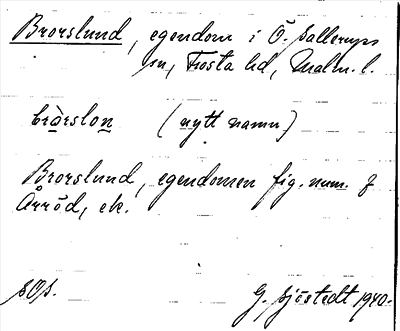 Brorslund, egendom i Ö. Sallerups
sn, Frosta hd, Malm. l.
bròrslon (nytt namn)
Brorslund, egendomen fig. num. 7
Årröd, ek.
SOS.
G. Sjöstedt 1940.